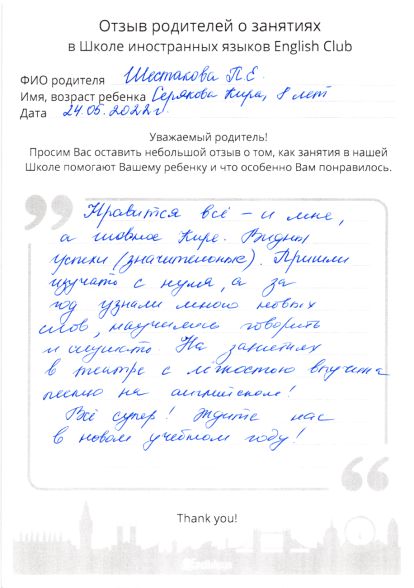 Отзыв родителей о занятиях
в Школе иностранных языков English Club
ФИО родителя Шестакова П.Е.
Имя, возраст ребенка Серякова Кира, 8 лет
Дата 24.05.2022г.
Уважаемый родитель!
Просим Вас оставить небольшой отзыв о том, как занятия в нашей
Школе помогают Вашему ребенку и что особенно Вам понравилось.
Нравится всё – и мне,
а главное Кире. Видны
успехи (значительные). Пришли
изучать с нуля, а за
год узнали много новых
слов, научились говорить
и слушать. На занятиях
в театре с лёгкостью выучила
песню на английском!
Всё супер! Ждите нас
в новом учебном году!
Thank you!